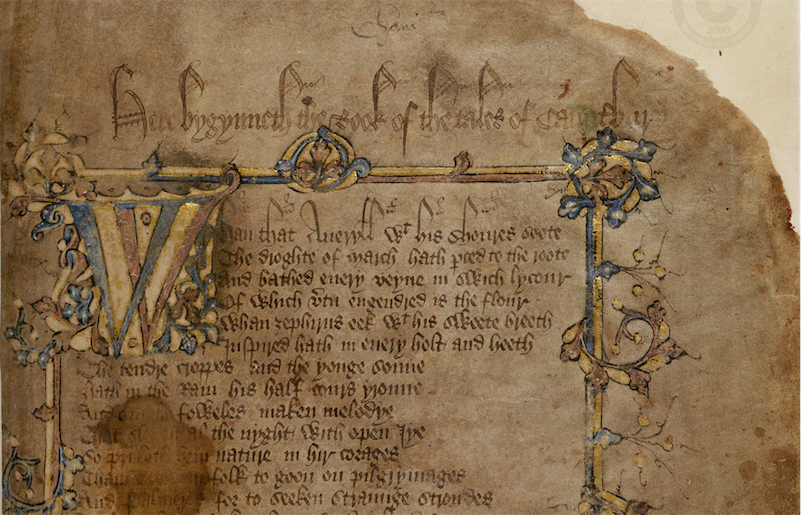 Here bygynneth the Book of the tales of
Whan that Aueryll wt his shoures soote
The droghte of march hath pced to the roote
And bathed euery veyne in swich lycour
Of which vtu engendred is the flour
Whan zephirus eek wt his sweete breeth
Inspired hath in euery holt and heeth
The tendre croppes and the yonge sonne
Hath in the Ram his half cours yronne
And foweles maken melodye
That al the nyght with open Iye
So priketh hem nature in hir corages
folk to goon on pilgrymages
And for to seeken straunge strondes